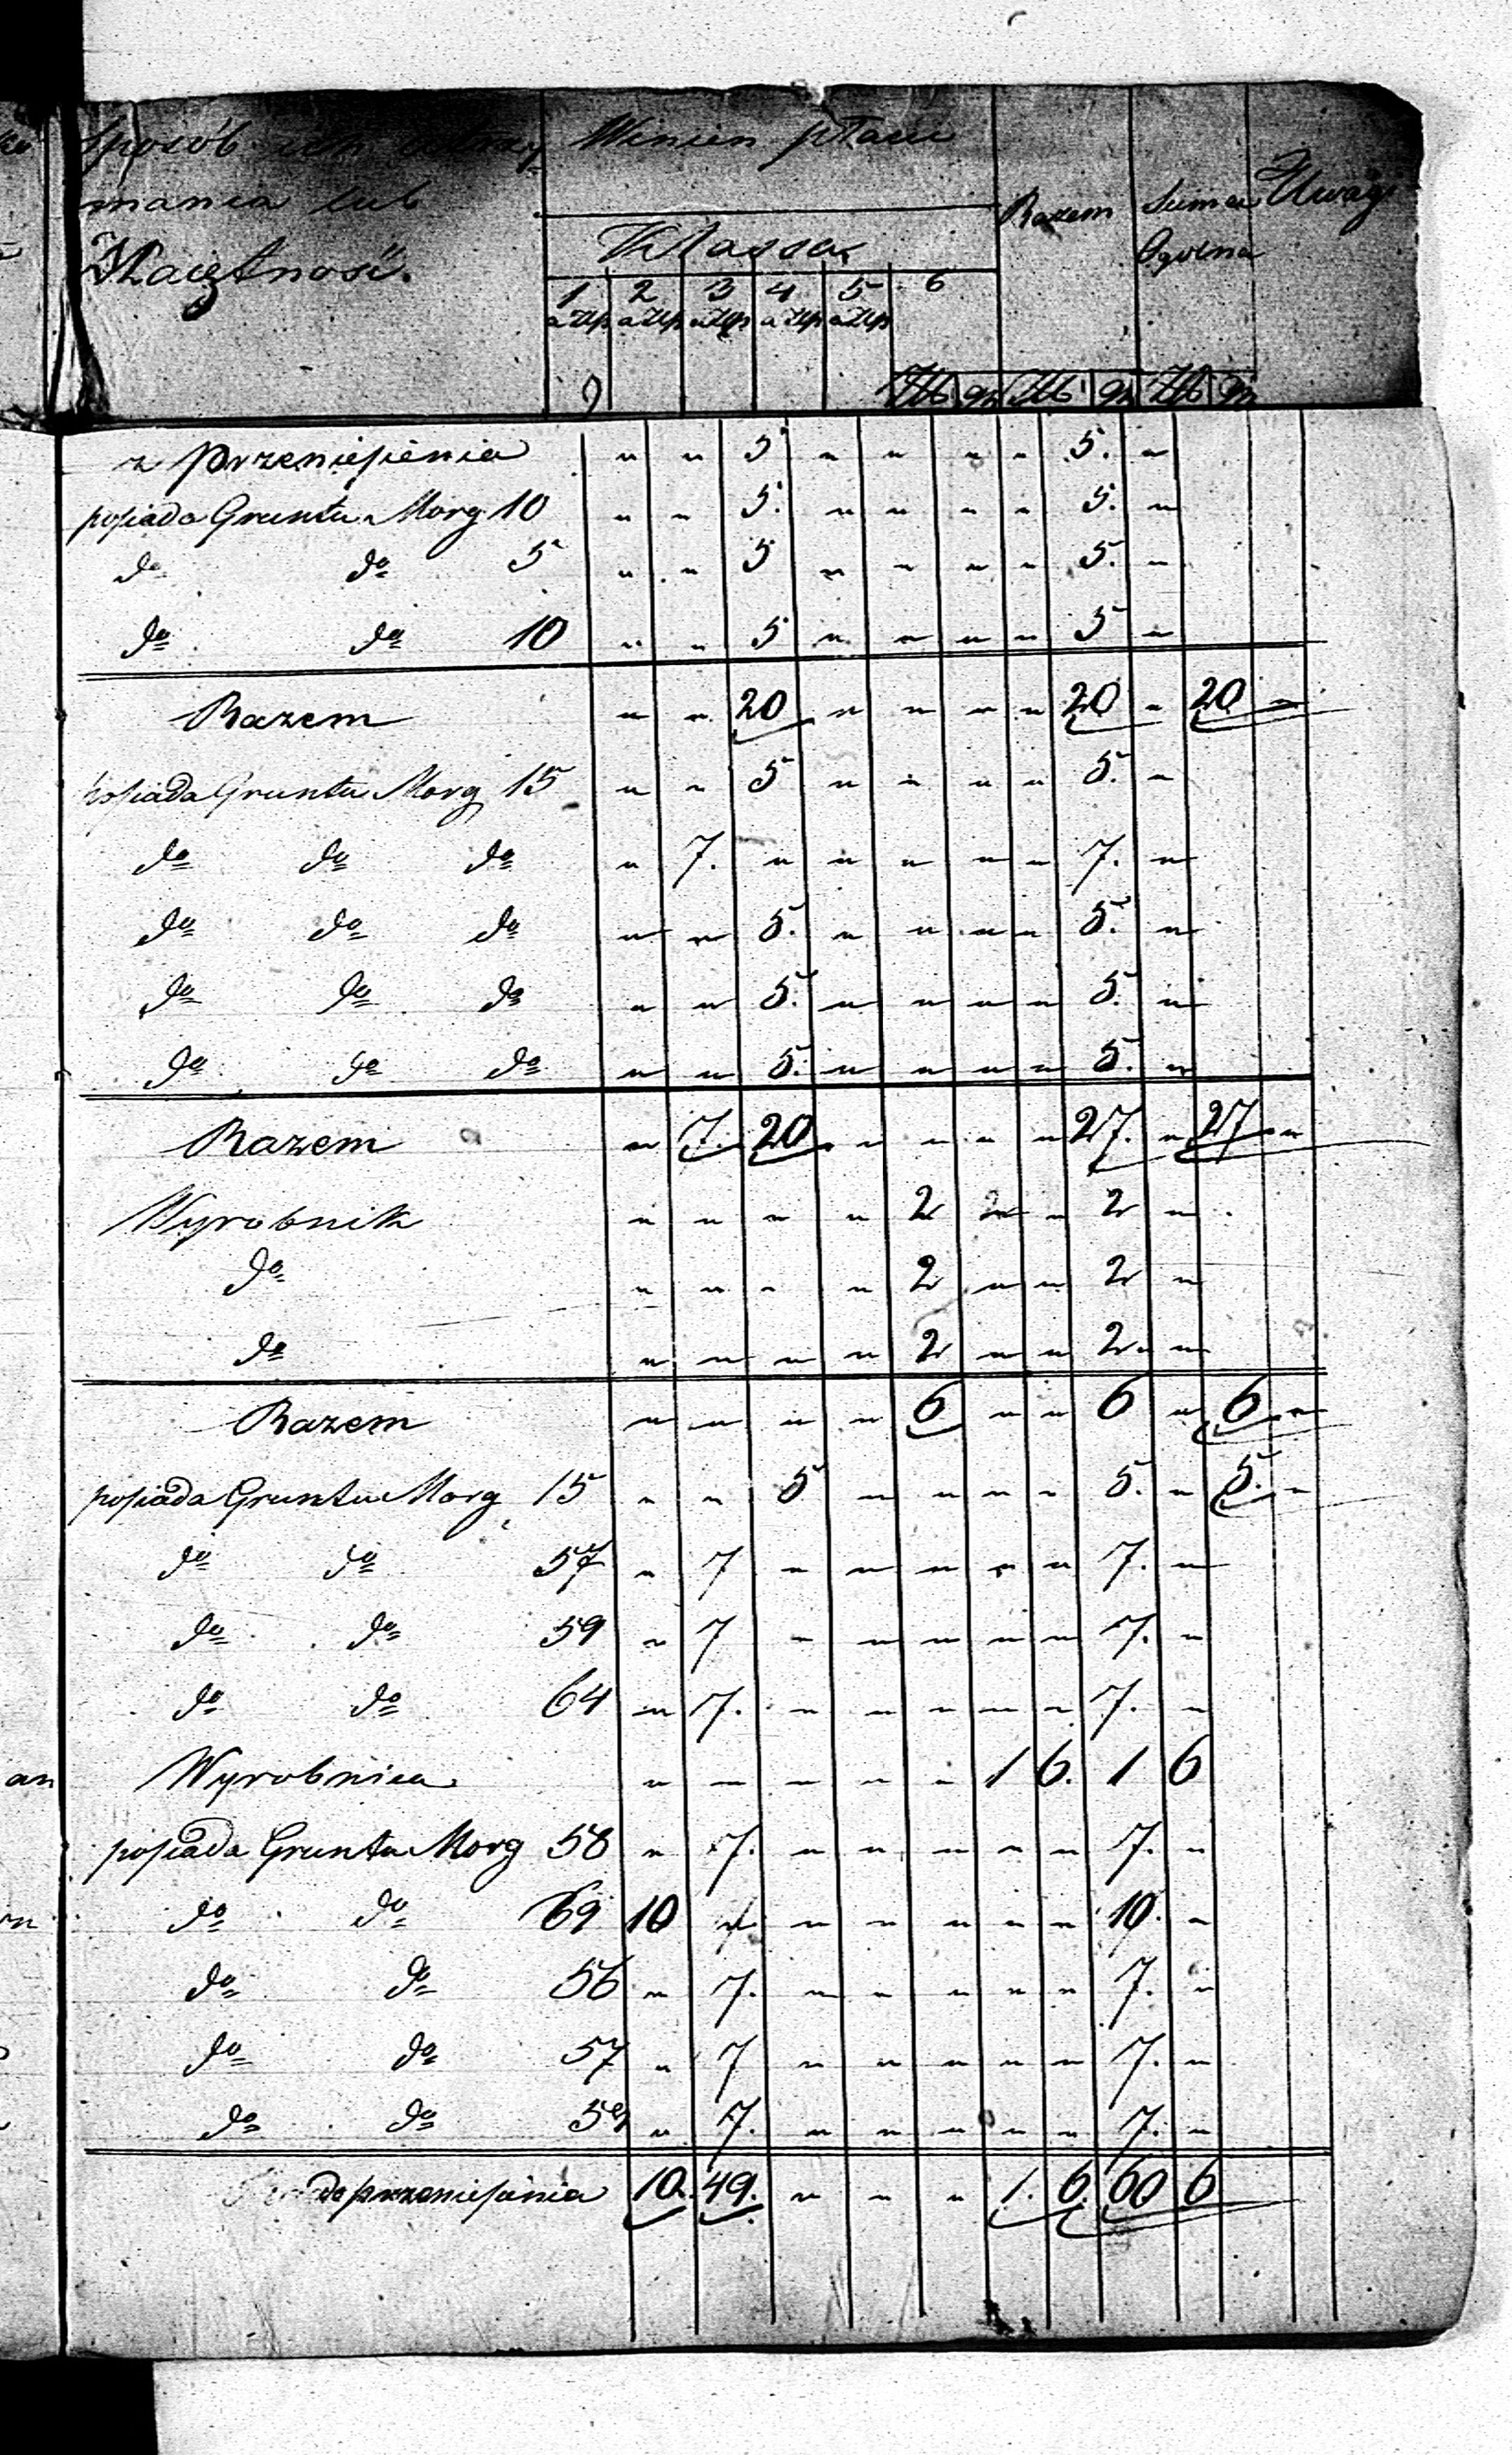 Sposób ich utrzy Winien płacić
mania lub Razem Suma Uwagi
Majętność. Klassa Ogolna
1 2 3 4 5 6
a Złp a Złp a Złp a Złp a Złp
Zł gr Zł gr Zł gr
z przeniesienia " " 5 " " " " 5. "
posiada Gruntu Morg 10 " " 5. " " " " 5. "
do do 5 " " 5 " " " " 5. "
do do 10 " " 5 " " " " 5 "
Razem " " 20 " " " " 20 " 20 "
posiada Gruntu Morg 15 " " 5 " " " " 5. "
do do do " 7. " " " " " 7. "
do do do " " 5. " " " " 5. "
do do do " " 5. " " " " 5. "
do do do " " 5. " " " " 5. "
Razem " 7. 20 " " " " 27. " 27 "
Wyrobnik " " " " 2 " 2 "
do " " " " 2 " " 2 "
do " " " " 2 " " 2 "
Razem " " " " 6 " " 6 " 6 "
posiada Gruntu Morg 15 " " 5 " " " " 5. " 5. "
do do 57 " 7 " " " " " 7. "
do do 59 " 7 " " " " " 7. "
do do 64 " 7. " " " " " 7. "
an Wyrobnica " " " " " 1 6. 1 6
posiada Gruntu Morg 58 " 7. " " " " " 7. "
do do 69 10 " " " " " 10. "
do do 56 " 7. " " " " " 7. "
do do 57 " 7 " " " " " 7. "
do do 59 " 7. " " " " " 7. "
do przeniesienia 10. 49. " " " 1. 6. 60 6